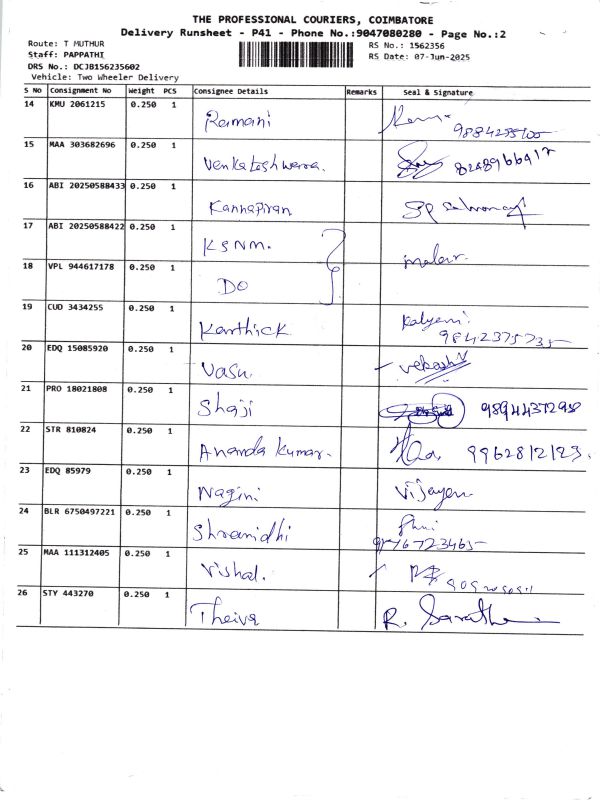 THE PROFESSIONAL COURIERS, COIMBATORE
Delivery Runsheet - P41 - Phone No.:9047080280 - Page No.:2
Route: T MUTHUR
Staff: PAPPATHI
DRS No.: DCJB156235602
Vehicle: Two Wheeler Delivery
RS No.: 1562356
RS Date: 07-Jun-2025
S No Consignment No Weight PCS Consignee Details Remarks Seal & Signature
14 KMU 2061215 0.250 1 Ramani
15 MAA 303682696 0.250 1 Venkateshwara. 8248966917
16 ABI 20250588433 0.250 1 Kannapiran
17 ABI 20250588422 0.250 1 KSNM.
18 VPL 944617178 0.250 1 DO
19 CUD 3434255 0.250 1 Karthick Kalyani
9842375735
20 EDQ 15085920 0.250 1 Vasu.
21 PRO 18021808 0.250 1 Shaji
22 STR 810824 0.250 1 Ananda Kumar. 9962812123.
23 EDQ 85979 0.250 1 Nagini Vijayan
24 BLR 6750497221 0.250 1 Shranidhi
25 MAA 111312405 0.250 1 Vishal.
26 STY 443270 0.250 1 Theiva